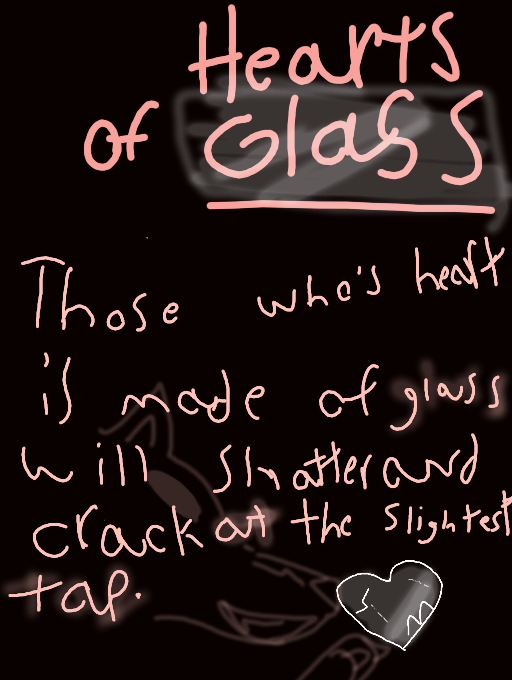 Hearts
of Glass
Those who's heart
is made of glass
will shatter and
crack at the slightest
tap.